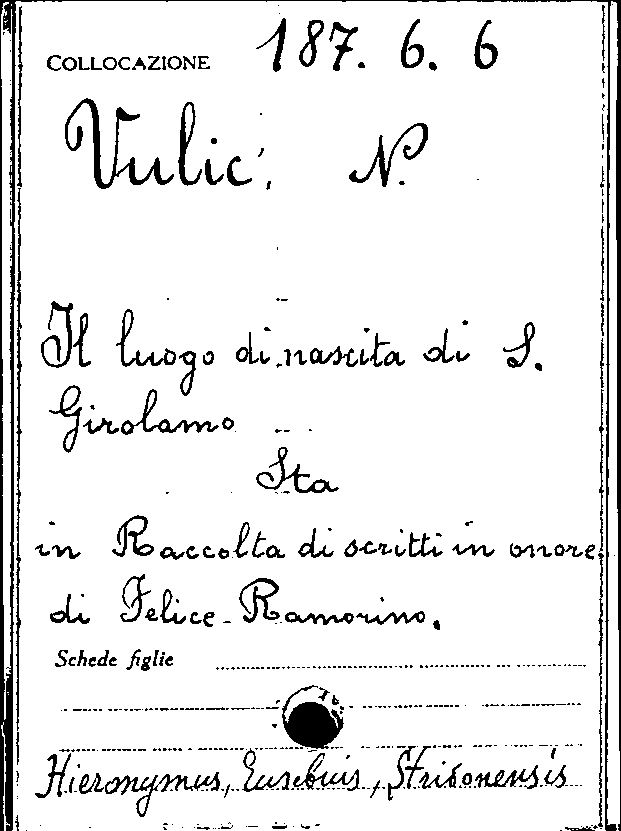 COLLOCAZIONE 187. 6. 6
Vulic', N.
Il luogo di nascita di S.
Girolamo
Sta
in Raccolta di scritti in onore
di Felice Ramorino.
Schede figlie
Hieronymus, Eusebius, Stridonensis